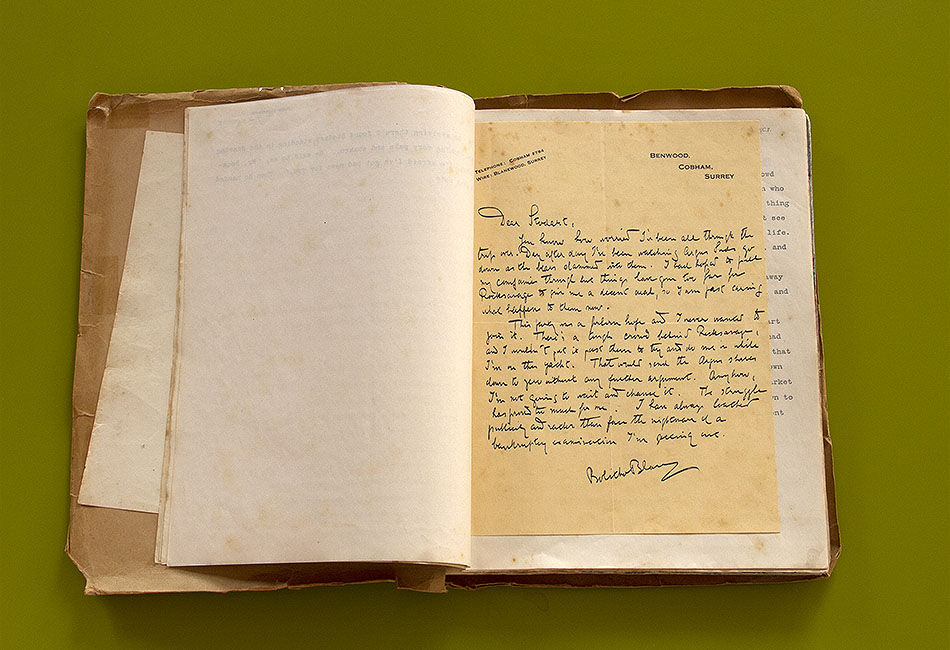 TELEPHONE: COBHAM 2784
WIRE: BLANEWOOD, SURREY
BENWOOD,
COBHAM,
SURREY
Dear Stodart,
You know how worried I've been all through the
trip over. Day after day I've been watching Argus Suds go
down as the bears slammed into them. I had hoped to pull
my companies through but things have gone too far for
Rocksavage to give me a decent deal, so I am past caring
what happens to them now.
This party was a forlorn hope and I never wanted to
join it. There's a tough crowd behind Rocksavage,
and I wouldn't put it past them to try and do me in while
I'm on this yacht. That would send the Argus shares
down to zero without any further argument. Anyhow,
I'm not going to wait and chance it. The struggle
has proved too much for me. I have always loathed
publicity and rather than face the nightmare of a
bankruptcy examination I'm getting out.
Bolitho Blane
who
thing
see
life.
and
away
and
that
to